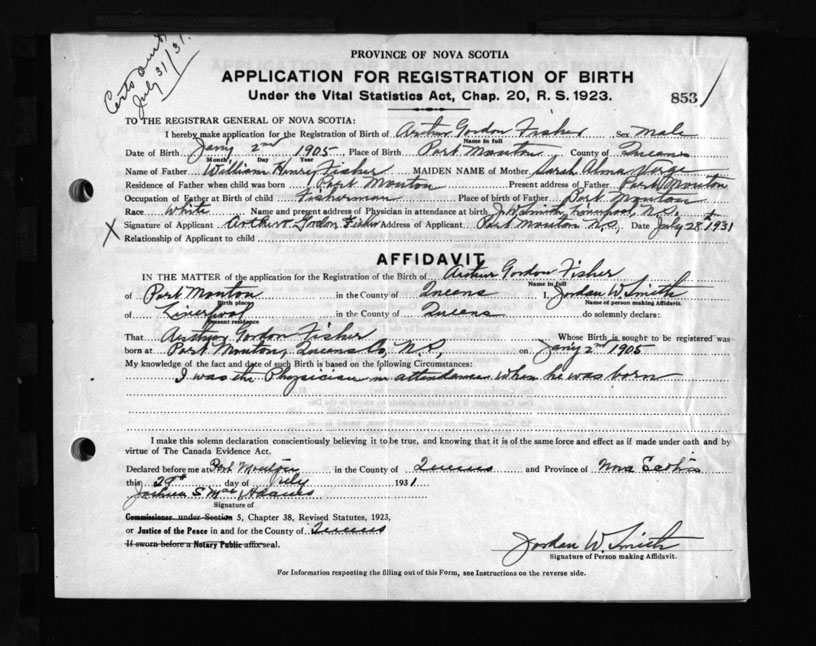 Certs sent
July 31/31.
PROVINCE OF NOVA SCOTIA
APPLICATION FOR REGISTRATION OF BIRTH
Under the Vital Statistics Act, Chap. 20, R. S. 1923.
853
TO THE REGISTRAR GENERAL OF NOVA SCOTIA:
I hereby make application for the Registration of Birth of Arthur Gordon Fisher Sex male
Name in full
Date of Birth Jany 2nd 1905 Place of Birth Port Mouton County of Queens
Month Day Year
Name of Father William Henry Fisher MAIDEN NAME of Mother Sarah Alma
Residence of Father when child was born Port Mouton Present address of Father Port Mouton
Occupation of Father at Birth of child Fisherman Place of birth of Father Port Mouton
Race White Name and present address of Physician in attendance at birth J. W. Smith, Liverpool, N.S.
X Signature of Applicant Arthur Gordon Fisher Address of Applicant Port Mouton N.S. Date July 28 1931
Relationship of Applicant to child
AFFIDAVIT
IN THE MATTER of the application for the Registration of the Birth of Arthur Gordon Fisher
Name in full
of Port Mouton in the County of Queens I, Jordan W. Smith
Birth place Name of person making Affidavit.
of Liverpool in the County of Queens do solemnly declare:
Present residence
That Arthur Gordon Fisher Whose Birth is sought to be registered was
born at Port Mouton, Queens Co, N.S, on Jany 2nd 1905
My knowledge of the fact and date of such Birth is based on the following Circumstances:
I was the Physician in attendance when he was born
I make this solemn declaration conscientiously believing it to be true, and knowing that it is of the same force and effect as if made under oath and by
virtue of The Canada Evidence Act.
Declared before me at Port Mouton in the County of Queens and Province of Nova Scotia
this 29th day of July 1931
Joshua S Mac Adams
Signature of
Commissioner under Section 5, Chapter 38, Revised Statutes, 1923,
or Justice of the Peace in and for the County of Queens
If sworn before a Notary Public affix seal.
Jordan W. Smith
Signature of Person making Affidavit.
For Information respecting the filling out of this Form, see Instructions on the reverse side.